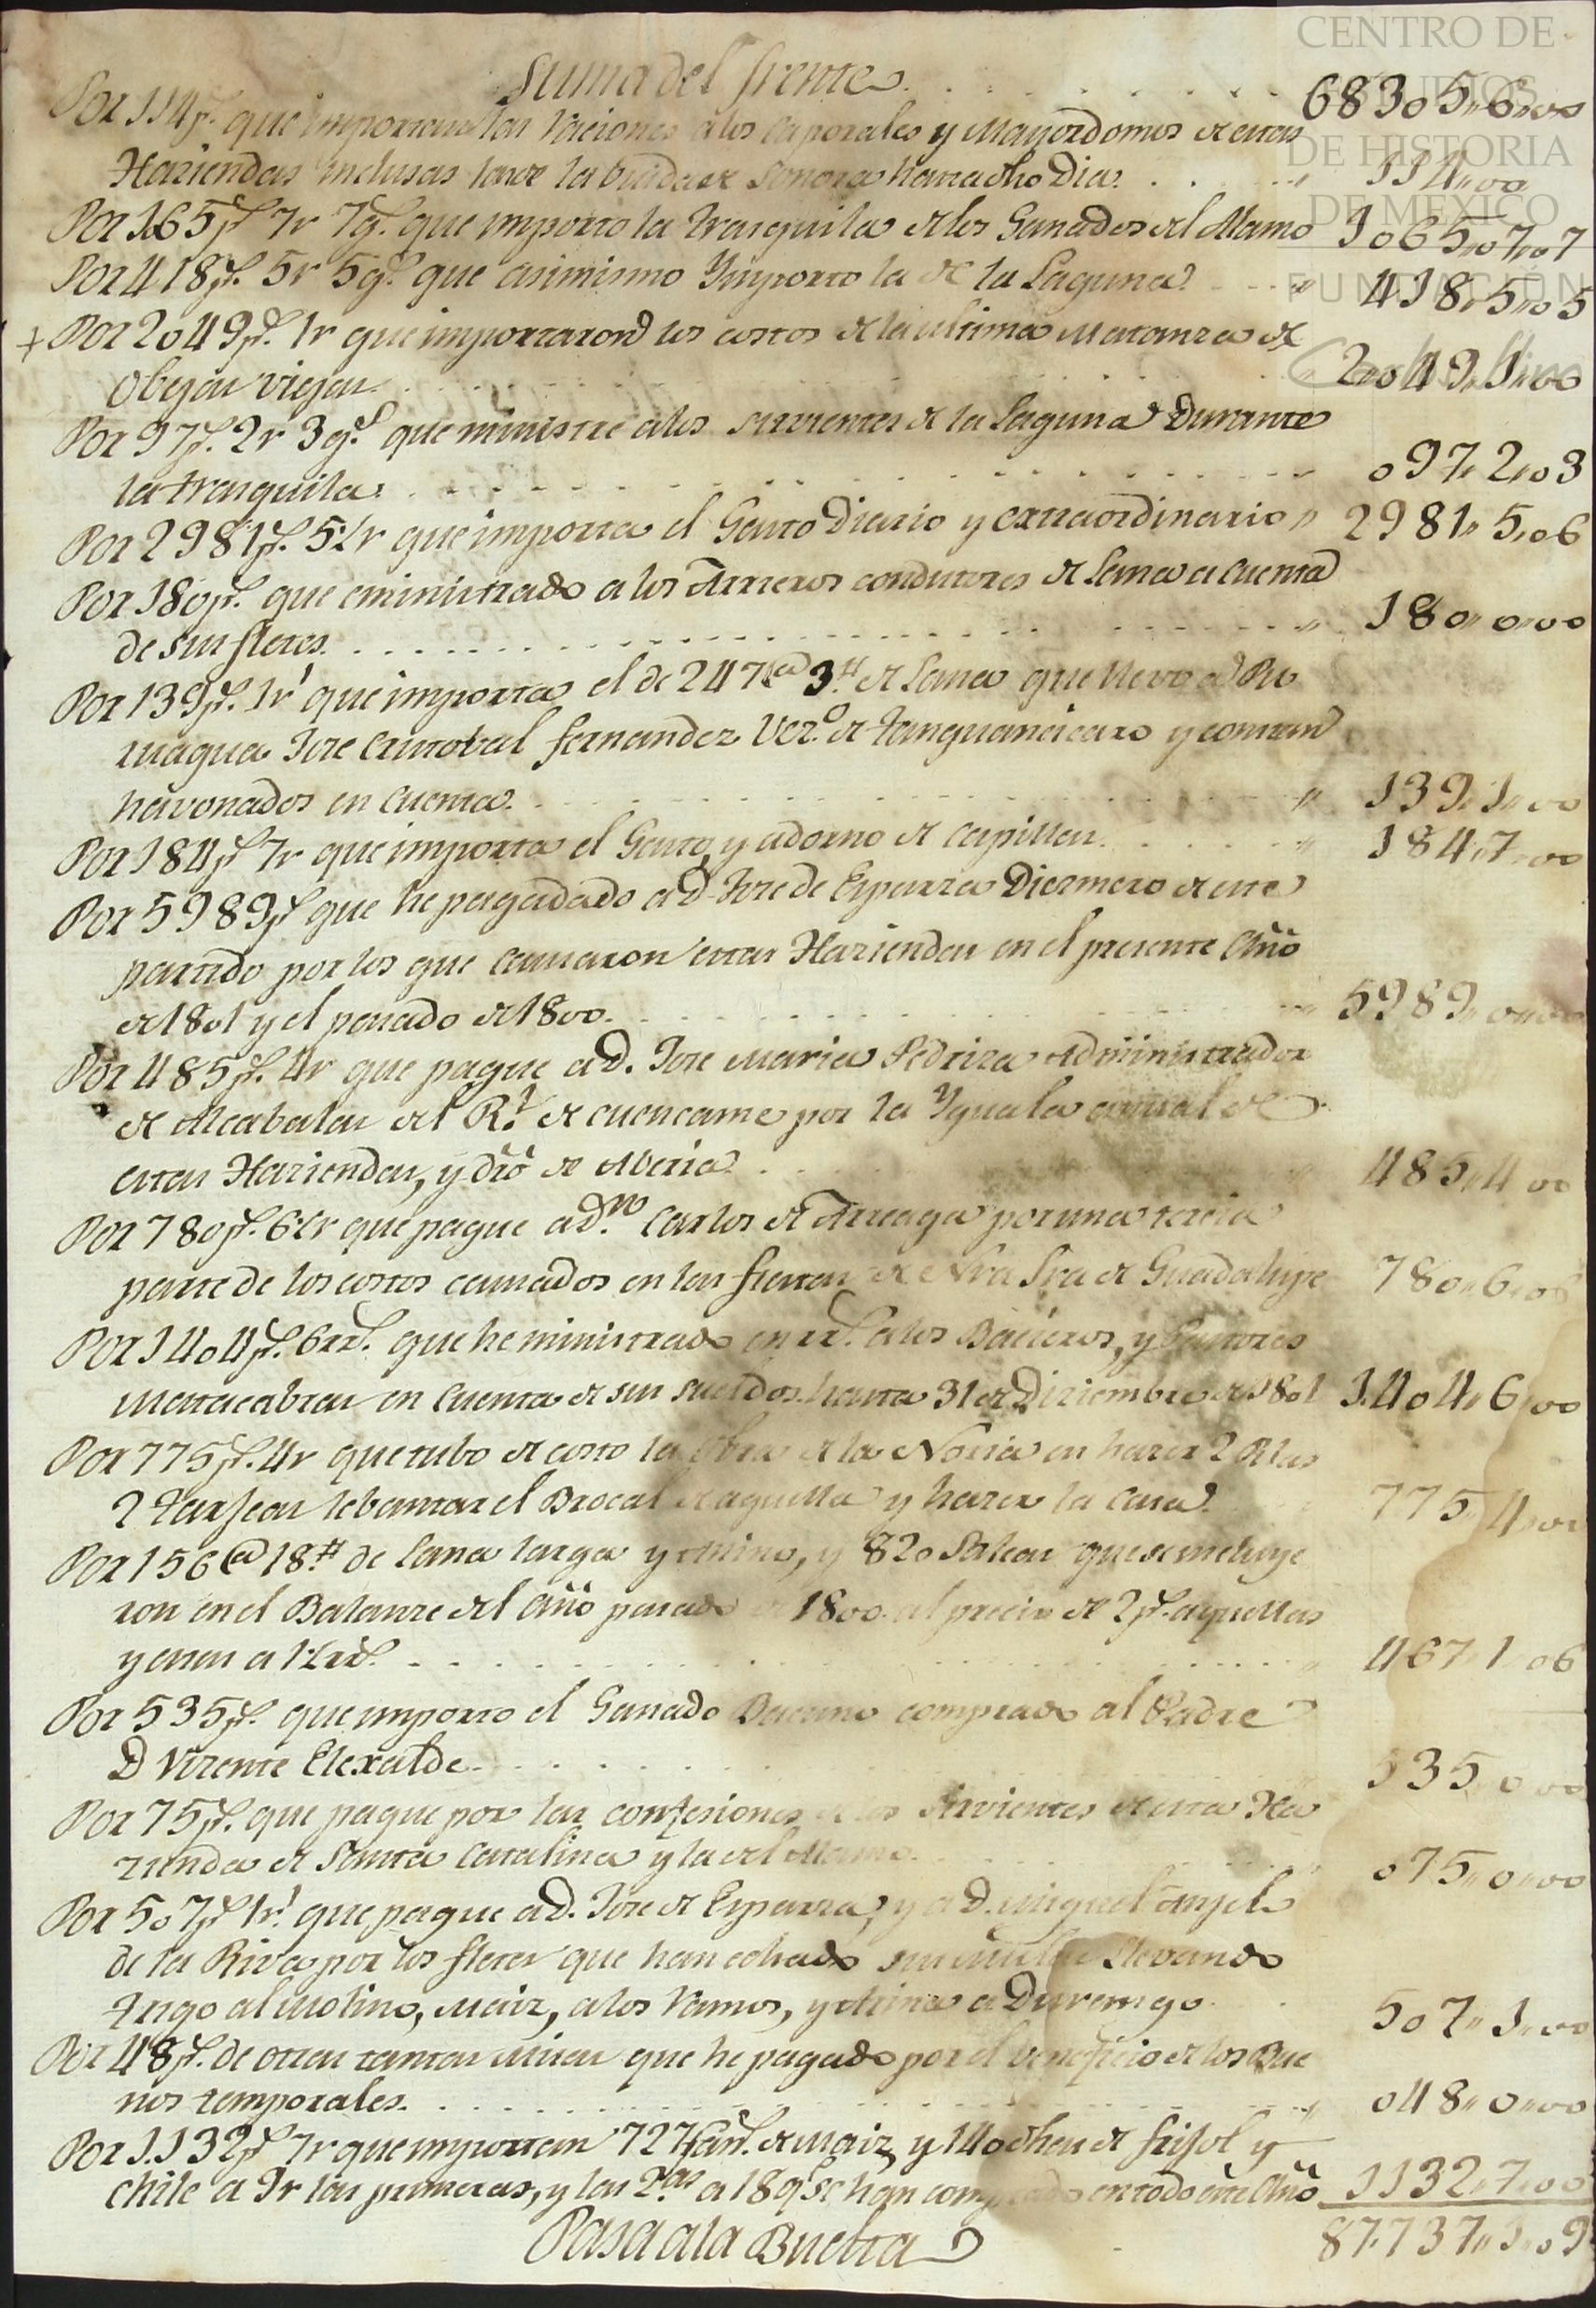 CENTRO DE
ESTUDIOS
DE HISTORIA
DE MEXICO
FUNDACIÓN
Suma del frente 683o5,,6,,00
Por 114ps. que importan las raciones a los caporales y Mayordomos de estas
Haziendas inclusas las de la viuda de Sonora hasta dho Dia. 114,,00
Por 1.65ps 7r 7gs. que importo la trasquila de los Ganados del Alamo 1o65,,o7,,o7
Por 418ps. 5r 5gs. que asimismo Ymporto la de la Laguna 418,,5,,o5
+ Por 2o49ps. 1r que importaron los costos de la ultima Matanza de
Obejas viejas 2,,o49,,1,,00
Por 97ps. 2r 3gs. que ministre a los sirvientes de la Laguna Durante
la trasquila. o97,,2,,o3
Por 2981ps. 5½r que importa el Gasto Diario y extraordinario 2981,,5,,o6
Por 18ops. que e ministrado a los Arrieros condutores de Lana a cuenta
de sus fletes. 18o,,o,,oo
Por 139ps. 1r que importa el de 247@ 3# de Lana que llevo a
Jose Cristobal fernandez Vezo. de tanguancicaro y constan
havonados en cuenta. 139,,1,,oo
Por 184ps 7r que importa el Gasto, y adorno de capillas. 184,,7,,oo
Por 5989ps que he pagadado a D Jose de Esparza Diezmero de este
partido por los que causaron estas Haziendas en el presente Año
de 18o1 y el pasado de 18oo. 5989,,o,,oo
Por 485ps. 4r que pague a D. Jose Maria Pedriza Administrador
de Alcabalas del Rl. de cuencame por la Yguala annual de
estas Haziendas, y dro de Alveria. 485,,4 oo
Por 78ops. 6½r que pague a Dn. Carlos de Arreaga por una tercia
parte de los costos causados en las fiestas de Nra Sra de Guadalupe 78o,,6,,o6
Por 14o4ps. 6rrs. que he ministrado en rrs. a los Bacieros, y Pastores
Mattacabras en cuenta de sus sueldos hasta 31 de Diziembre de 18o1 1.4o4,,6,,oo
Por 775ps. 4r que tubo de costo la obra de la Noria en hazer 2 Pilas
2 tarjeas lebantar el Brocal de aquella y hazer la casa. 775,,4,,oo
Por 156@ 18# de Lana larga y Añino, y 82o Saleas que se incluye
ron en el Balanze del Año pasado de 18oo. al precio de 2ps. aquellas
y estas a 1½rrs. 467 1 o6
Por 535ps. que importo el Ganado Bacuno comprado al Padre
D Vizente Elexalde 535,,o oo
Por 75ps. que pague por las confesiones de los sirvientes de esta Ha
zienda de Santa Catalina y la del Alamo. o75,,o,,oo
Por 5o7ps 1r. que pague a D. Jose de Esparza, y a D. Miguel Anjel
de la Riva por los fletes que han echado sus mulas llevando
trigo al Molino, Maiz, a los Ramos, y Arina a Durango. 5o7,,1,,oo
Por 48ps. de otras tantas misas que he pagado por el beneficio de los Bue
nos temporales. o48,,o,,oo
Por 1.132ps 7r que importan 727 fans. de Maiz y 14o dhas de frisol y
chile a 9r las primeras, y las 2as a 18 qe se han comprado en todo este Año 1132,,7,,oo
Pasa a la Buelta 87.737,,3,,o9